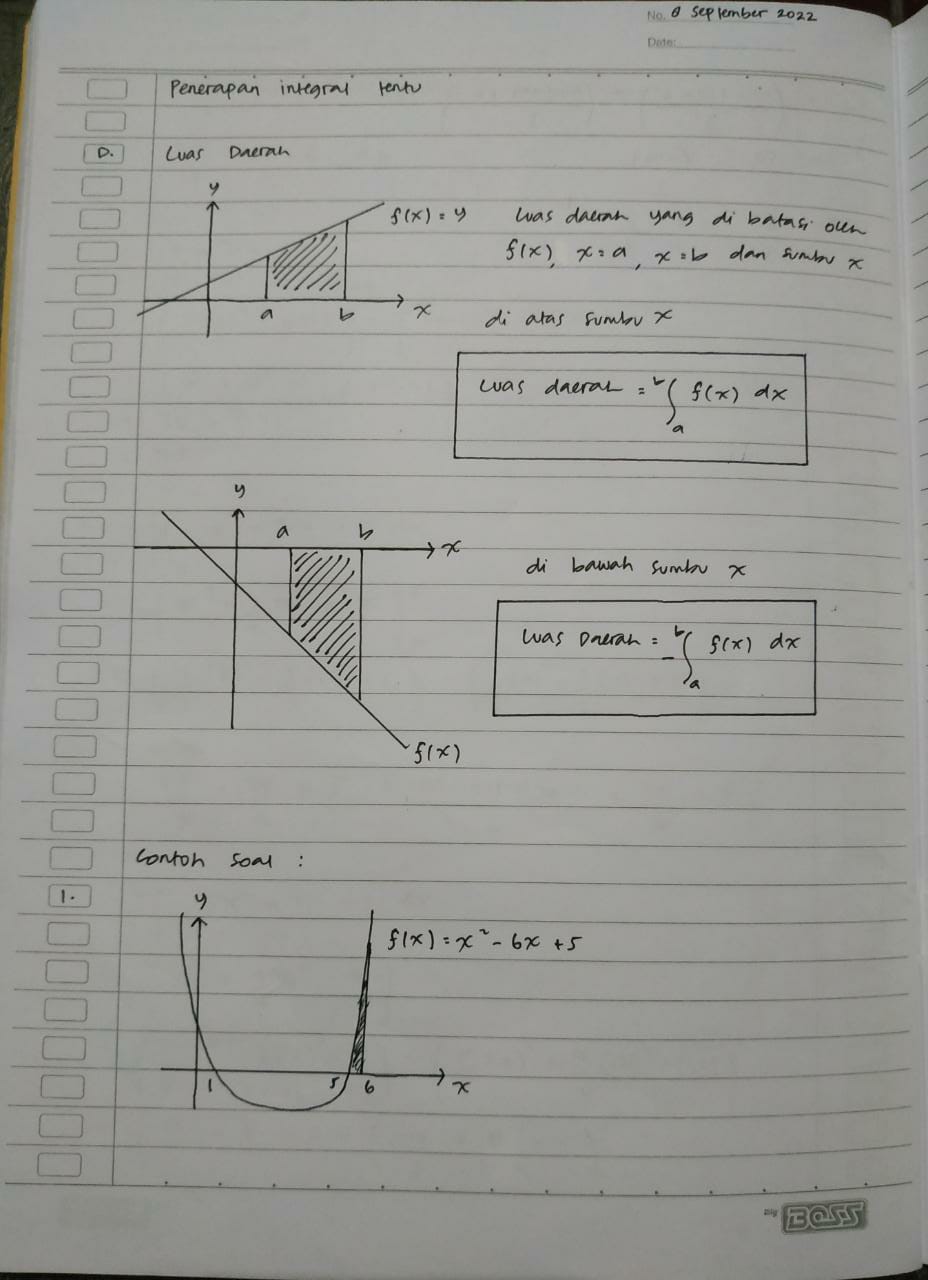 No. 8 September 2022
Date:
Penerapan integral tentu
D. Luas Daerah
y
f(x) = y
a b x
Luas daerah yang di batasi oleh
f(x), x = a, x = b dan sumbu x
di atas sumbu x
Luas daerah = ᵇ∫ₐ f(x) dx
y
a b x
f(x)
di bawah sumbu x
Luas Daerah = - ᵇ∫ₐ f(x) dx
Contoh soal :
1.
y
f(x) = x² - 6x + 5
1 5 6 x
Big BOSS